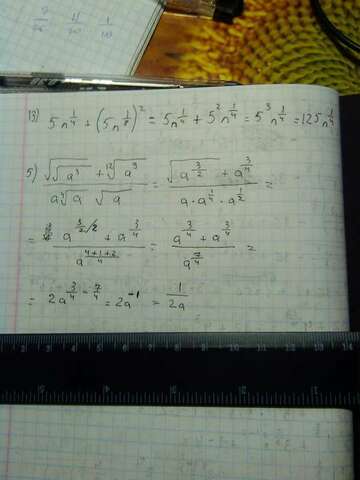 13) 5n^{1/4} + (5n^{1/8})^2 = 5n^{1/4} + 5^2 n^{1/4} = 5^3 n^{1/4} = 125n^{1/4}
5) (√√a³ + ¹²√a⁹) / (a ⁴√a √a) = (√a^{3/2} + a^{3/4}) / (a · a^{1/4} · a^{1/2}) =
= (a^{3/2/2} + a^{3/4}) / a^{(4+1+2)/4} = (a^{3/4} + a^{3/4}) / a^{7/4} =
= 2a^{3/4 - 7/4} = 2a^{-1} = 1/(2a)